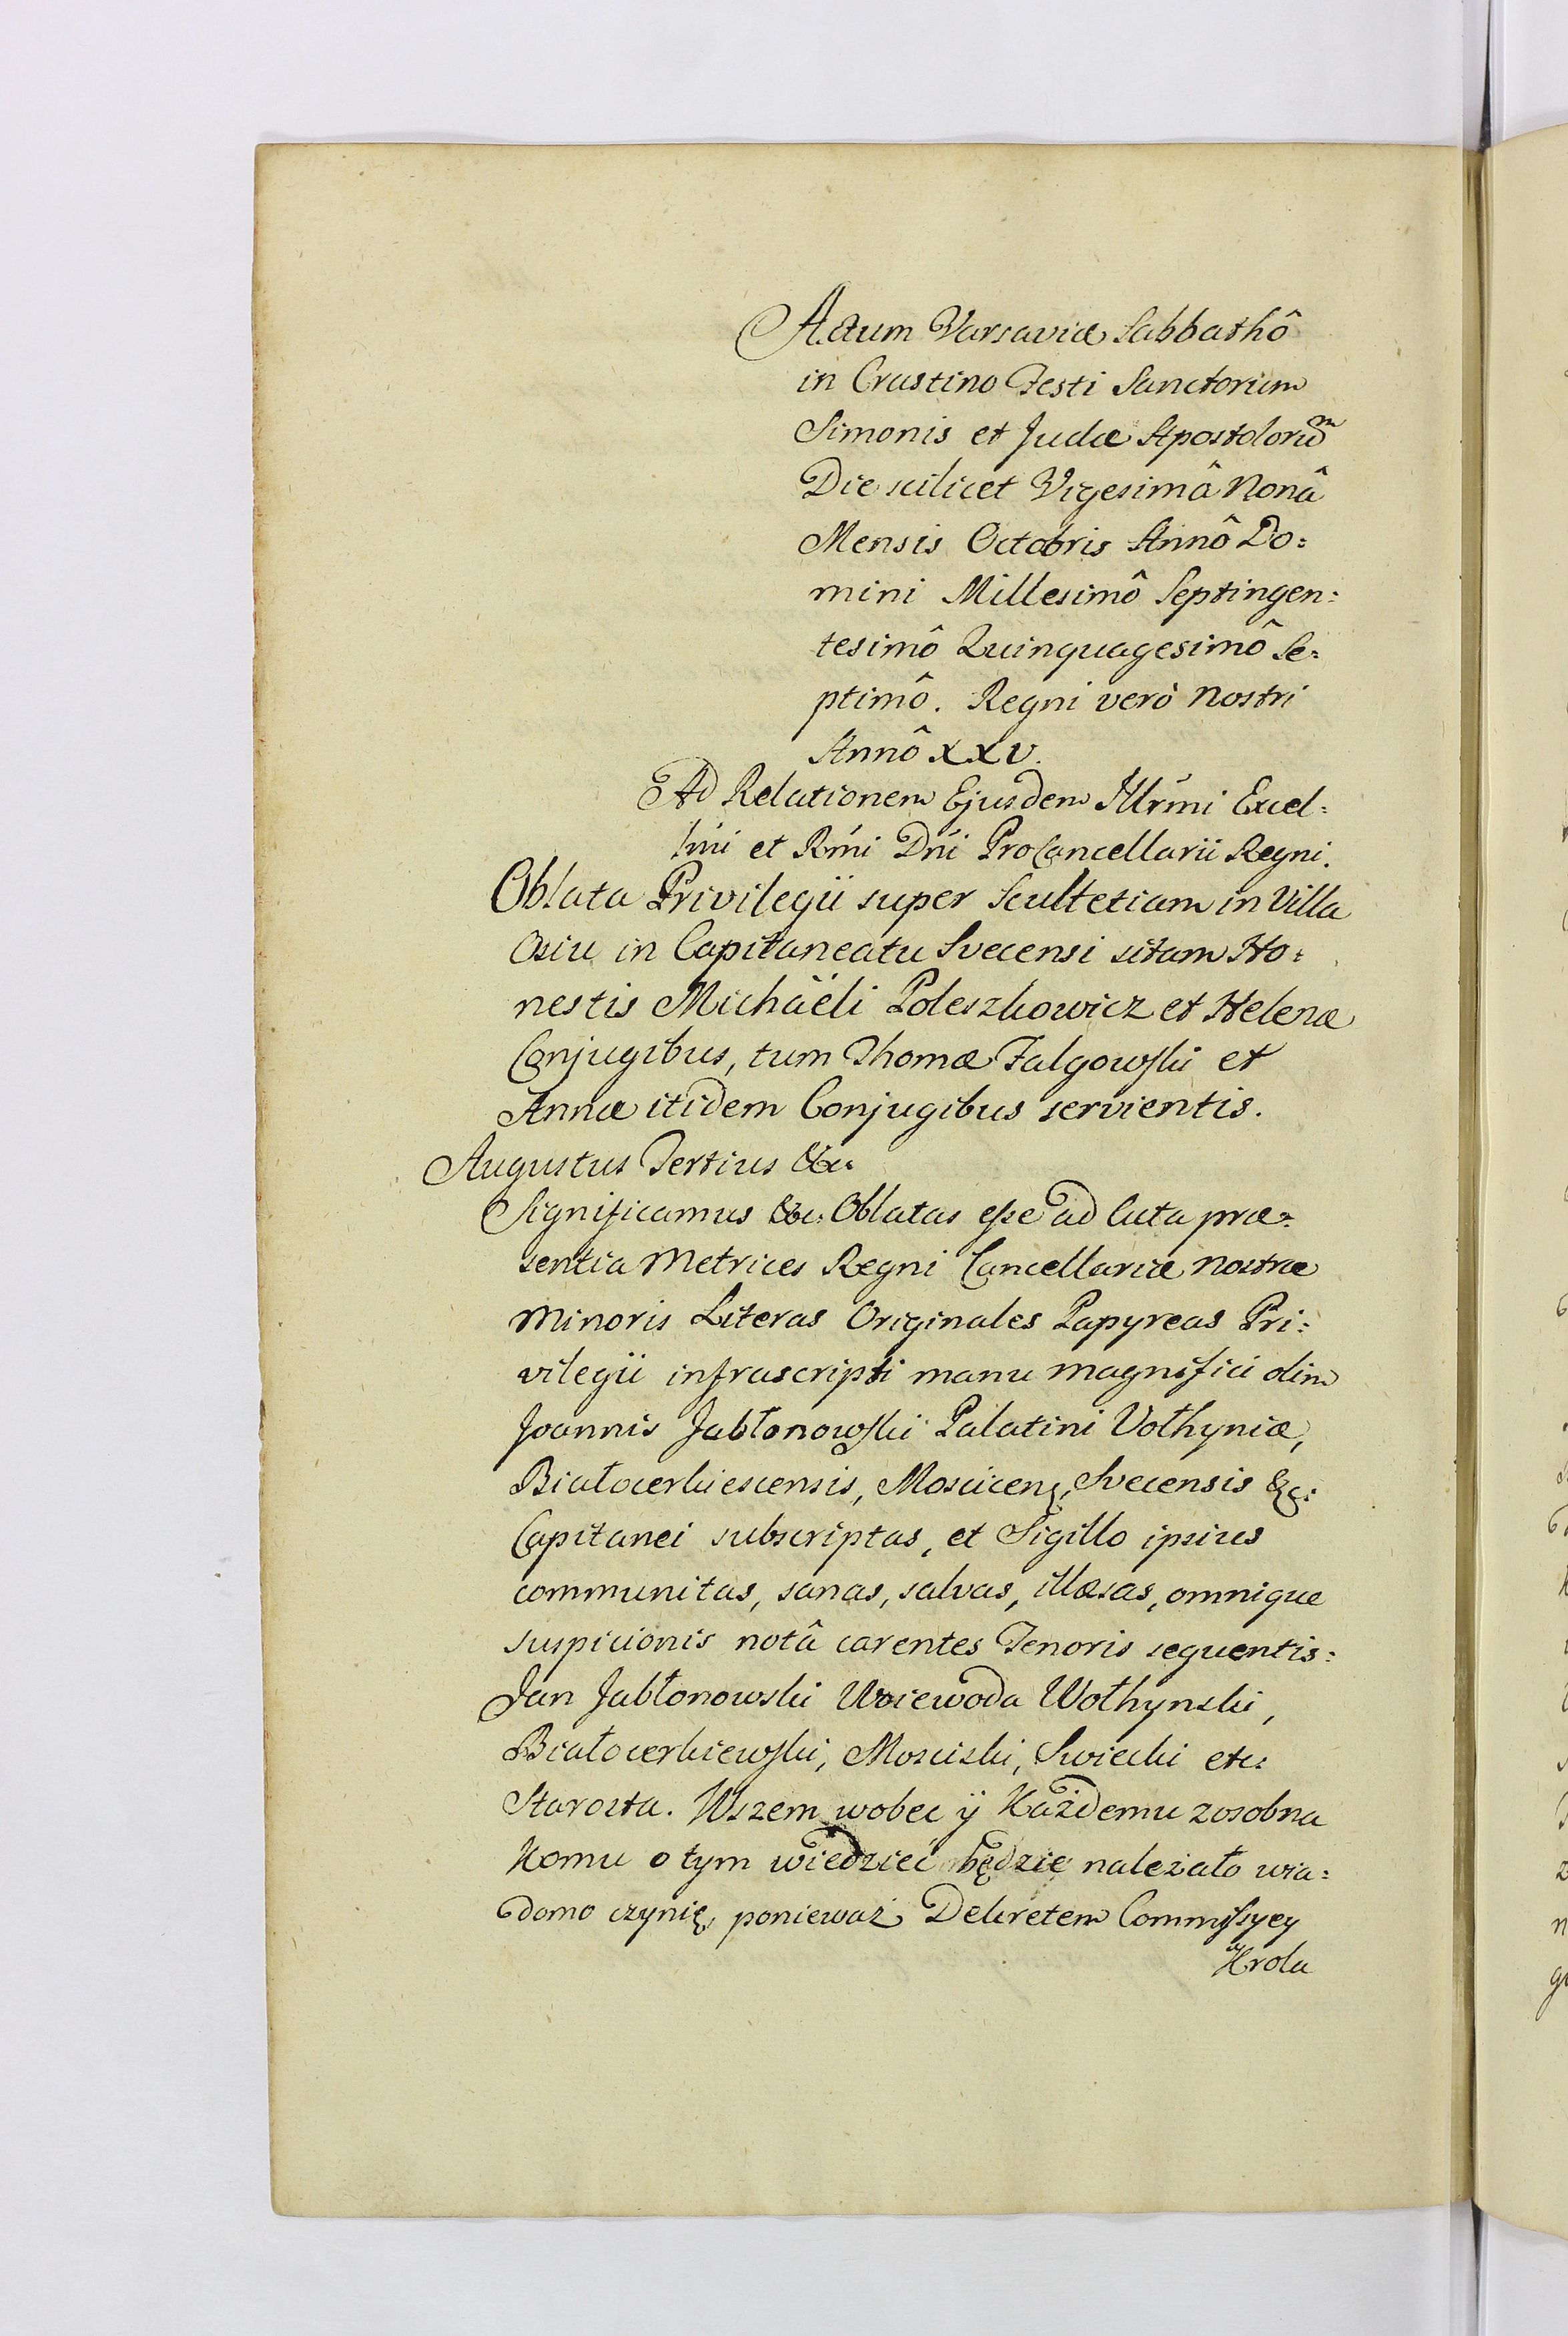 Actum Varsaviæ Sabbathô
in Crastino Festi Sanctorum
Simonis et Judæ Apostolorum
Die scilicet Vigesimâ Nonâ
Mensis Octobris Annô Do=
mini Millesimô Septingen=
tesimô Quinquagesimô Se=
ptimô. Regni verò Nostri
Annô XXV.
Ad Relationem Ejusdem Illrmi Excel=
lmi et Rmi Dni ProCancellarii Regni.
Oblata Privilegii super Scultetiam in Villa
Osiu in Capitaneatu Svecensi sitam Ho=
nestis Michäeli Poleszkowicz et Helenæ
Conjugibus, tum Thomæ Falgowski et
Annæ itidem Conjugibus servientis.
Augustus Tertius &c.
Significamus &c. Oblatas esse ad Acta præ=
sentia Metrices Regni Cancellariæ Nostræ
Minoris Literas Originales Papyreas Pri=
vilegii infrascripti manu Magnifici olim
Joannis Jabłonowski Palatini Vołhyniæ,
Białocerkiescensis, Mosciceñ, Svecensis &c:
Capitanei subscriptas, et Sigillo ipsius
communitas, sanas, salvas, illæsas, omnique
suspicionis notâ carentes Tenoris sequentis:
Jan Jabłonowski Woiewoda Wołhynski,
Białocerkiewski, Mosciski, Swiecki etc:
Starosta. Wszem wobec ÿ Każdemu zosobna
Komu o tym wiedzieć będzie należało wia=
domo czynię, ponieważ Dekretem Commissyey
Krola